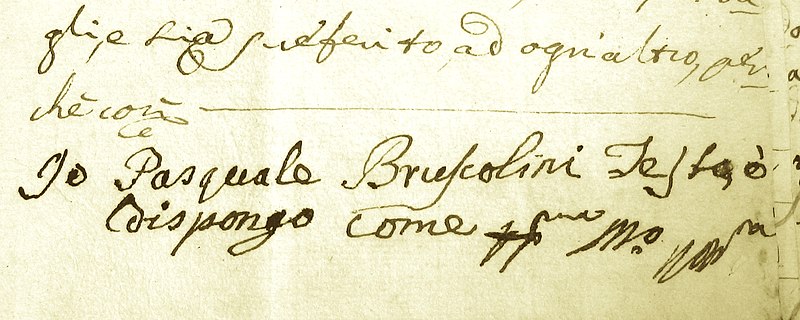 glie sia preferito, ad ogn'altro, per
chè così
Io Pasquale Bruscolini Testo, ò
dispongo come sopra m.o